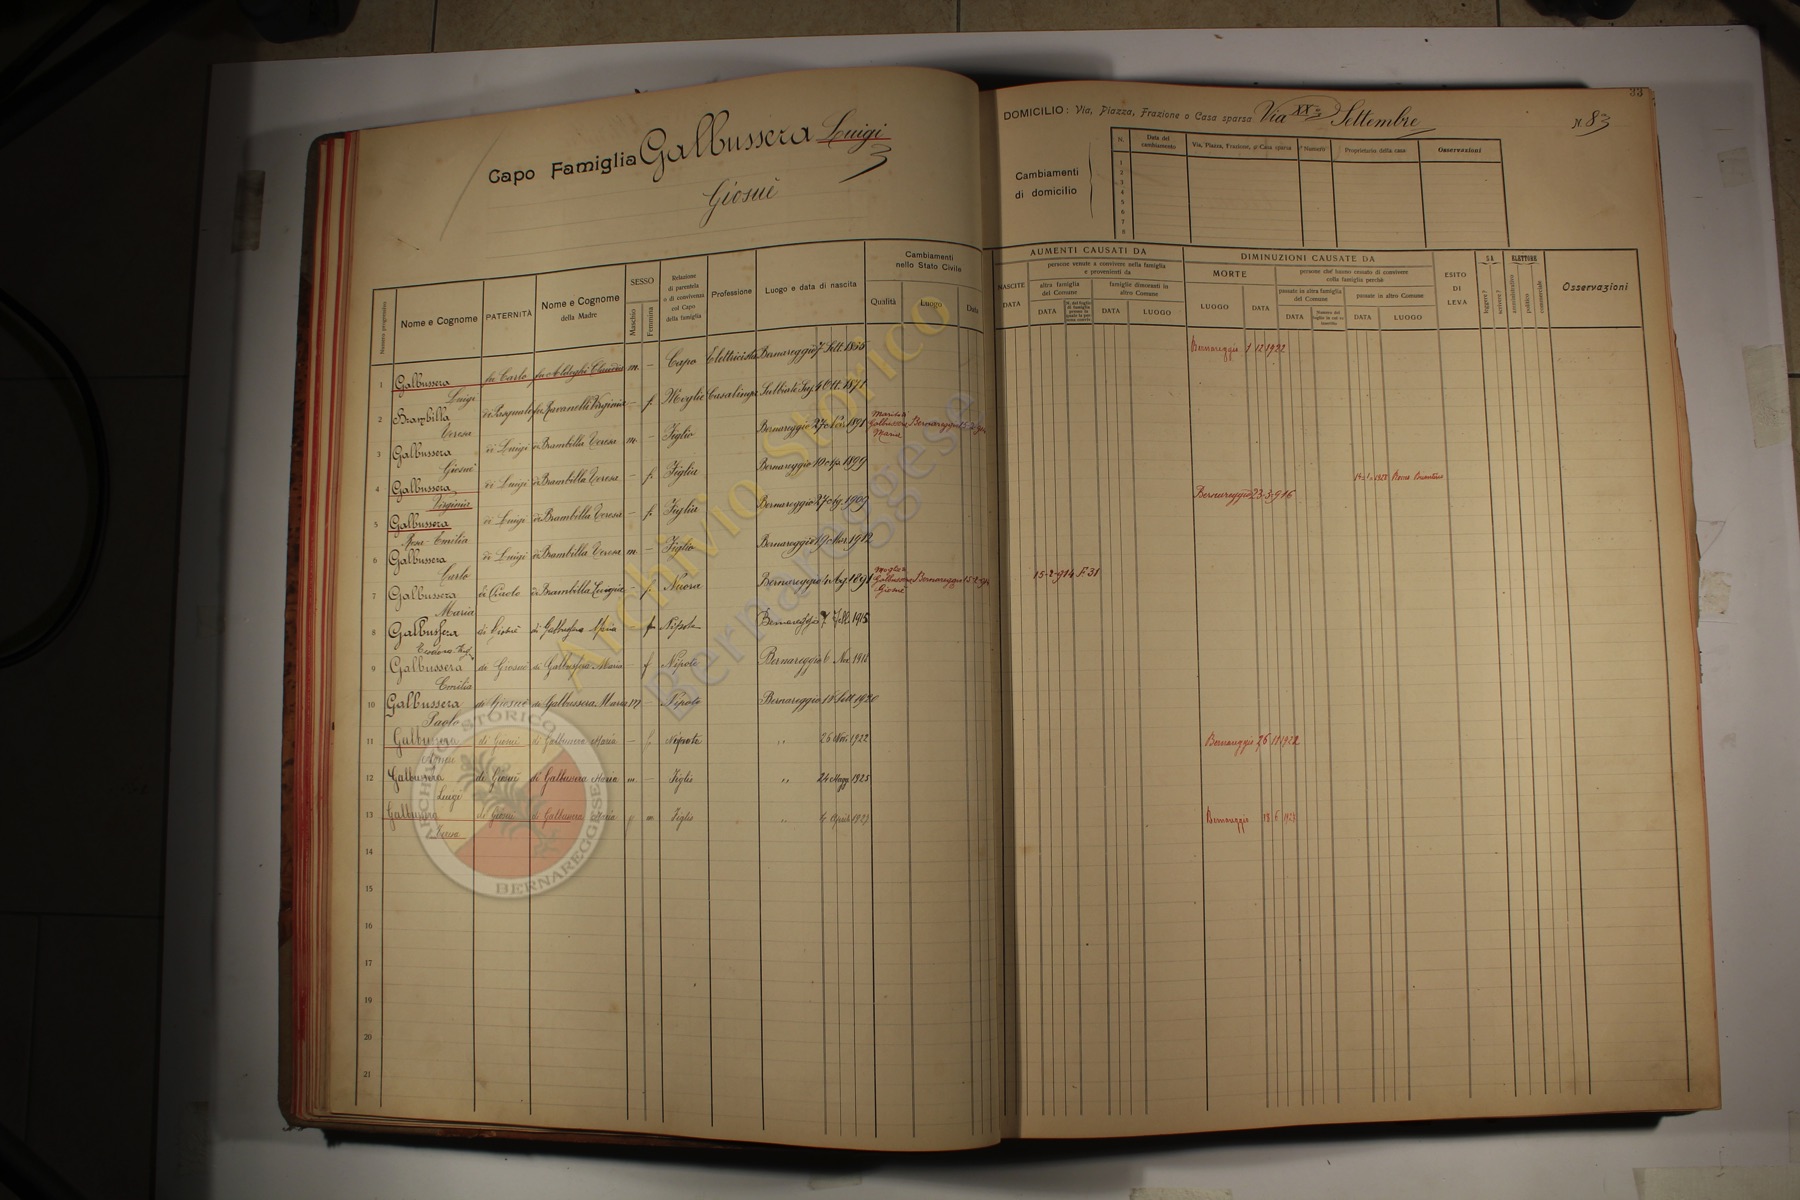 33
Capo Famiglia Galbussera Luigi
Giosuè
DOMICILIO: Via, Piazza, Frazione o Casa sparsa Via XX Settembre N. 83
Cambiamenti di domicilio
N. Data del cambiamento Via, Piazza, Frazione, o Casa sparsa Numero Proprietario della casa Osservazioni
1
2
3
4
5
6
7
8
Numero progressivo Nome e Cognome PATERNITÀ Nome e Cognome della Madre SESSO Maschio Femmina Relazione di parentela o di convivenza col Capo della famiglia Professione Luogo e data di nascita Cambiamenti nello Stato Civile Qualità Luogo Data
NASCITE DATA AUMENTI CAUSATI DA persone venute a convivere nella famiglia e provenienti da altra famiglia del Comune DATA famiglie dimoranti in altro Comune DATA LUOGO
DIMINUZIONI CAUSATE DA MORTE LUOGO DATA persone che hanno cessato di convivere colla famiglia perchè passate in altra famiglia del Comune DATA passate in altro Comune DATA LUOGO
ESITO DI LEVA SA leggere? scrivere? ELETTORE amministrativo politico commerciale Osservazioni
1 Galbussera Luigi fu Carlo fu m. – Capo Elettricista Bernareggio 7 Sett. 1855 Bernareggio 1 12 1922
2 Brambilla Teresa di Pasquale fu Ravanelli Virginia – f. Moglie Casalinga Sulbiate Sup. 4 Ott. 1871
3 Galbussera Giosuè di Luigi di Brambilla Teresa m. – Figlio Bernareggio 27 1891 Marito di Galbussera Maria Bernareggio
4 Galbussera Virginia di Luigi di Brambilla Teresa – f. Figlia Bernareggio 10 1899
5 Galbussera Rosa Emilia di Luigi di Brambilla Teresa – f. Figlia Bernareggio 27 1909 Bernareggio 23-3-916
6 Galbussera Carlo di Luigi di Brambilla Teresa m. – Figlio Bernareggio 19 1912
7 Galbussera Maria di Paolo di Brambilla Luigia – f. Nuora Bernareggio 4 Ag. 1891 Moglie di Galbussera Giosuè Bernareggio 15-2-914 15-2-914 F. 31
8 Galbussera di Giosuè di Galbussera Maria f Nipote Bernareggio 7 Febb. 1915
9 Galbussera Emilia di Giosuè di Galbussera Maria – f Nipote Bernareggio 6 Nov. 1918
10 Galbussera Paolo di Giosuè di Galbussera Maria m – Nipote Bernareggio 18 Sett 1920
11 Galbussera di Giosuè di Galbussera Maria – f. Nipote ,, 26 Nov. 1922 Bernareggio 26 11 1922
12 Galbussera Luigi di Giosuè di Galbussera Maria m. – Figlio ,, 24 Magg. 1925
13 Galbussera Teresa di Giosuè di Galbussera Maria Figlia ,, 4 Aprile Bernareggio 18 6
14
15
16
17
18
19
20
21
Archivio Storico
Bernareggese
ARCHIVIO STORICO
BERNAREGGESE